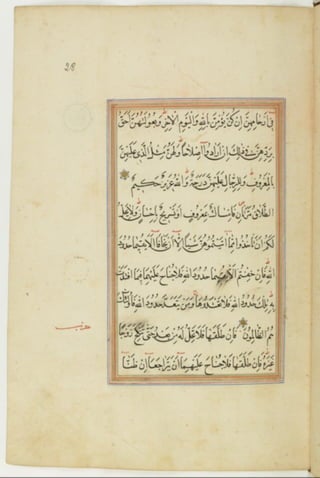 28
فِي أَرْحَامِهِنَّ إِنْ كُنَّ يُؤْمِنَّ بِاللهِ وَالْيَوْمِ الْآخِرِ وَبُعُولَتُهُنَّ أَحَقُّ
بِرَدِّهِنَّ فِي ذَلِكَ إِنْ أَرَادُوا إِصْلَاحًا وَلَهُنَّ مِثْلُ الَّذِي عَلَيْهِنَّ
بِالْمَعْرُوفِ وَلِلرِّجَالِ عَلَيْهِنَّ دَرَجَةٌ وَاللهُ عَزِيزٌ حَكِيمٌ
الطَّلَاقُ مَرَّتَانِ فَإِمْسَاكٌ بِمَعْرُوفٍ أَوْ تَسْرِيحٌ بِإِحْسَانٍ وَلَا يَحِلُّ
لَكُمْ أَنْ تَأْخُذُوا مِمَّا آتَيْتُمُوهُنَّ شَيْئًا إِلَّا أَنْ يَخَافَا أَلَّا يُقِيمَا حُدُودَ
اللهِ فَإِنْ خِفْتُمْ أَلَّا يُقِيمَا حُدُودَ اللهِ فَلَا جُنَاحَ عَلَيْهِمَا فِيمَا افْتَدَتْ
بِهِ تِلْكَ حُدُودُ اللهِ فَلَا تَعْتَدُوهَا وَمَنْ يَتَعَدَّ حُدُودَ اللهِ فَأُولَئِكَ
هُمُ الظَّالِمُونَ فَإِنْ طَلَّقَهَا فَلَا تَحِلُّ لَهُ مِنْ بَعْدُ حَتَّى تَنْكِحَ زَوْجًا
غَيْرَهُ فَإِنْ طَلَّقَهَا فَلَا جُنَاحَ عَلَيْهِمَا أَنْ يَتَرَاجَعَا إِنْ ظَنَّا
حزب